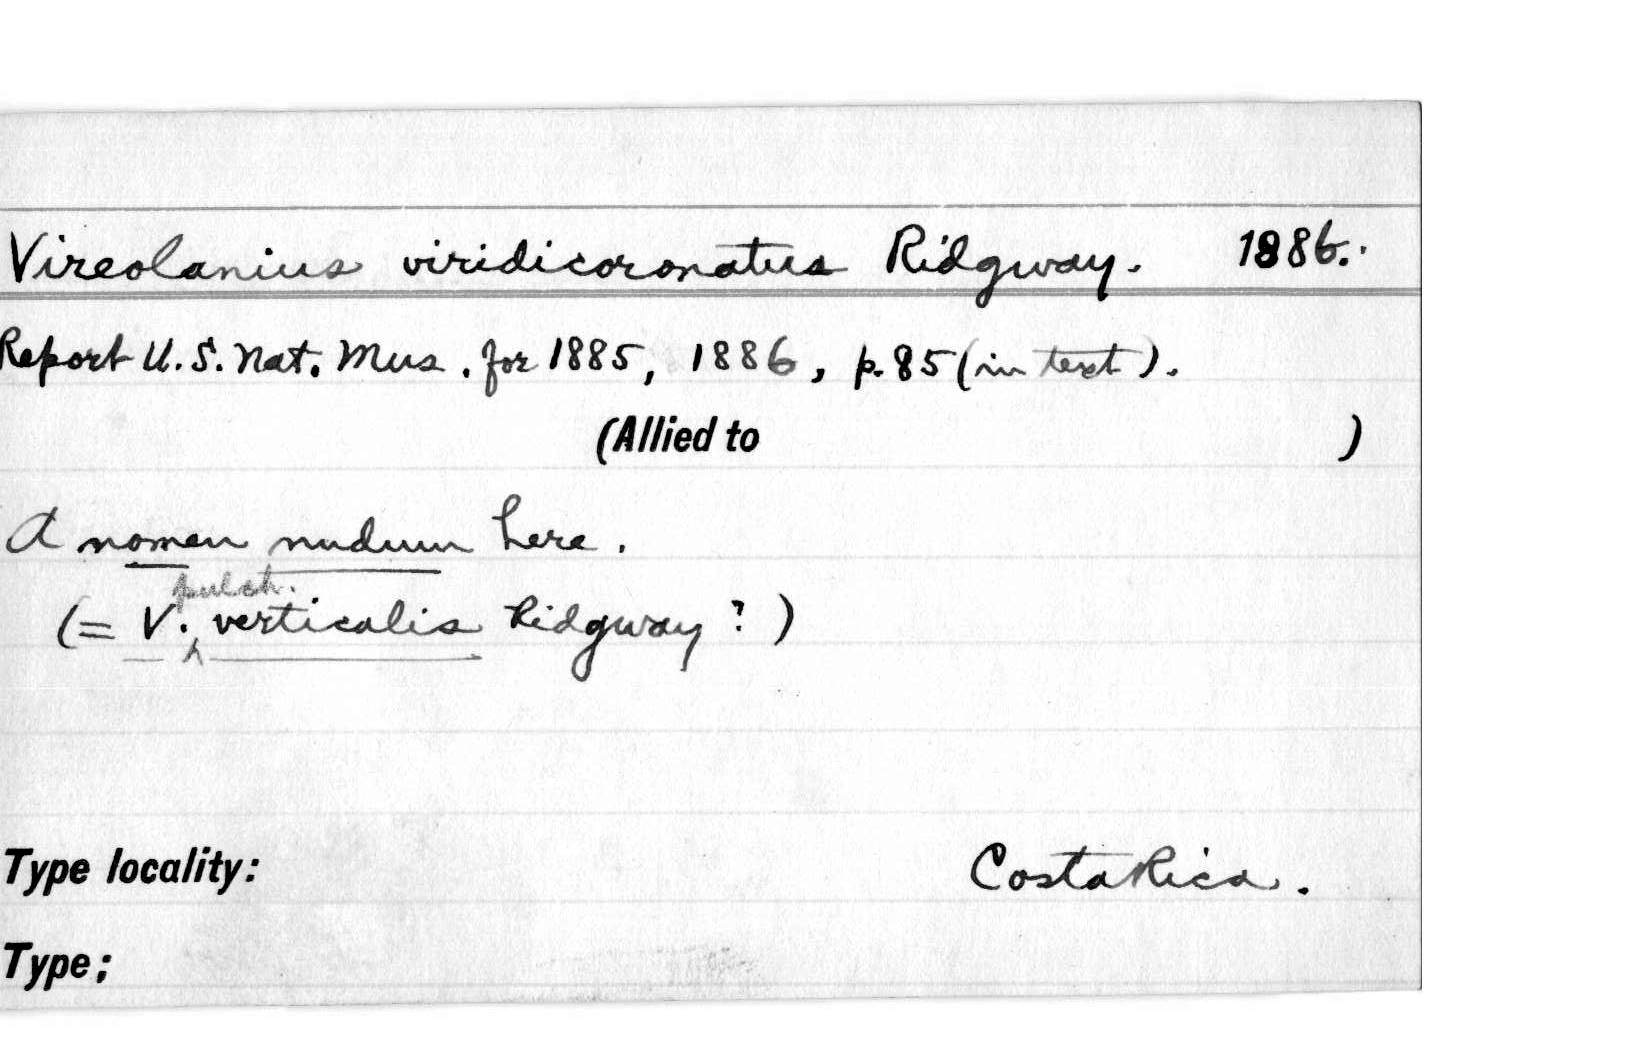 Vireolanius viridicoronatus Ridgway. 1886.
Report U.S. Nat. Mus. for 1885, 1886, p. 85 (in text).
(Allied to )
A nomen nudum here.
pulch.
(= V. verticalis Ridgway ? )
Type locality: Costa Rica.
Type;